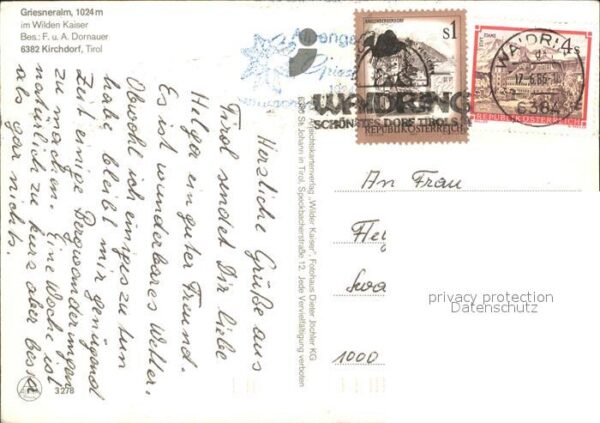 Griesneralm, 1024 m
im Wilden Kaiser
Bes.: F. u. A. Dornauer
6382 Kirchdorf, Tirol
Herzliche Grüße aus
Tirol sendet Dir liebe
Helga ein guter Freund.
Es ist wunderbares Wetter.
Obwohl ich einiges zu tun
habe bleibt mir genügend
Zeit einige Bergwanderungen
zu machen. Eine Woche ist
natürlich zu kurz aber besser
als gar nichts.
3278
Ansichtskartenverlag „Wilder Kaiser", Fotohaus Dieter Jöchler KG
6380 St. Johann in Tirol, Speckbacherstraße 12. Jede Vervielfältigung verboten
Alpenga
WAIDRING
SCHÖNSTES DORF TIROLS
s1
REPUBLIK ÖSTERREICH
4s
STIFT STAMS
REPUBLIK ÖSTERREICH
WAIDRI
6384
An Frau
Hel
1000
privacy protection
Datenschutz